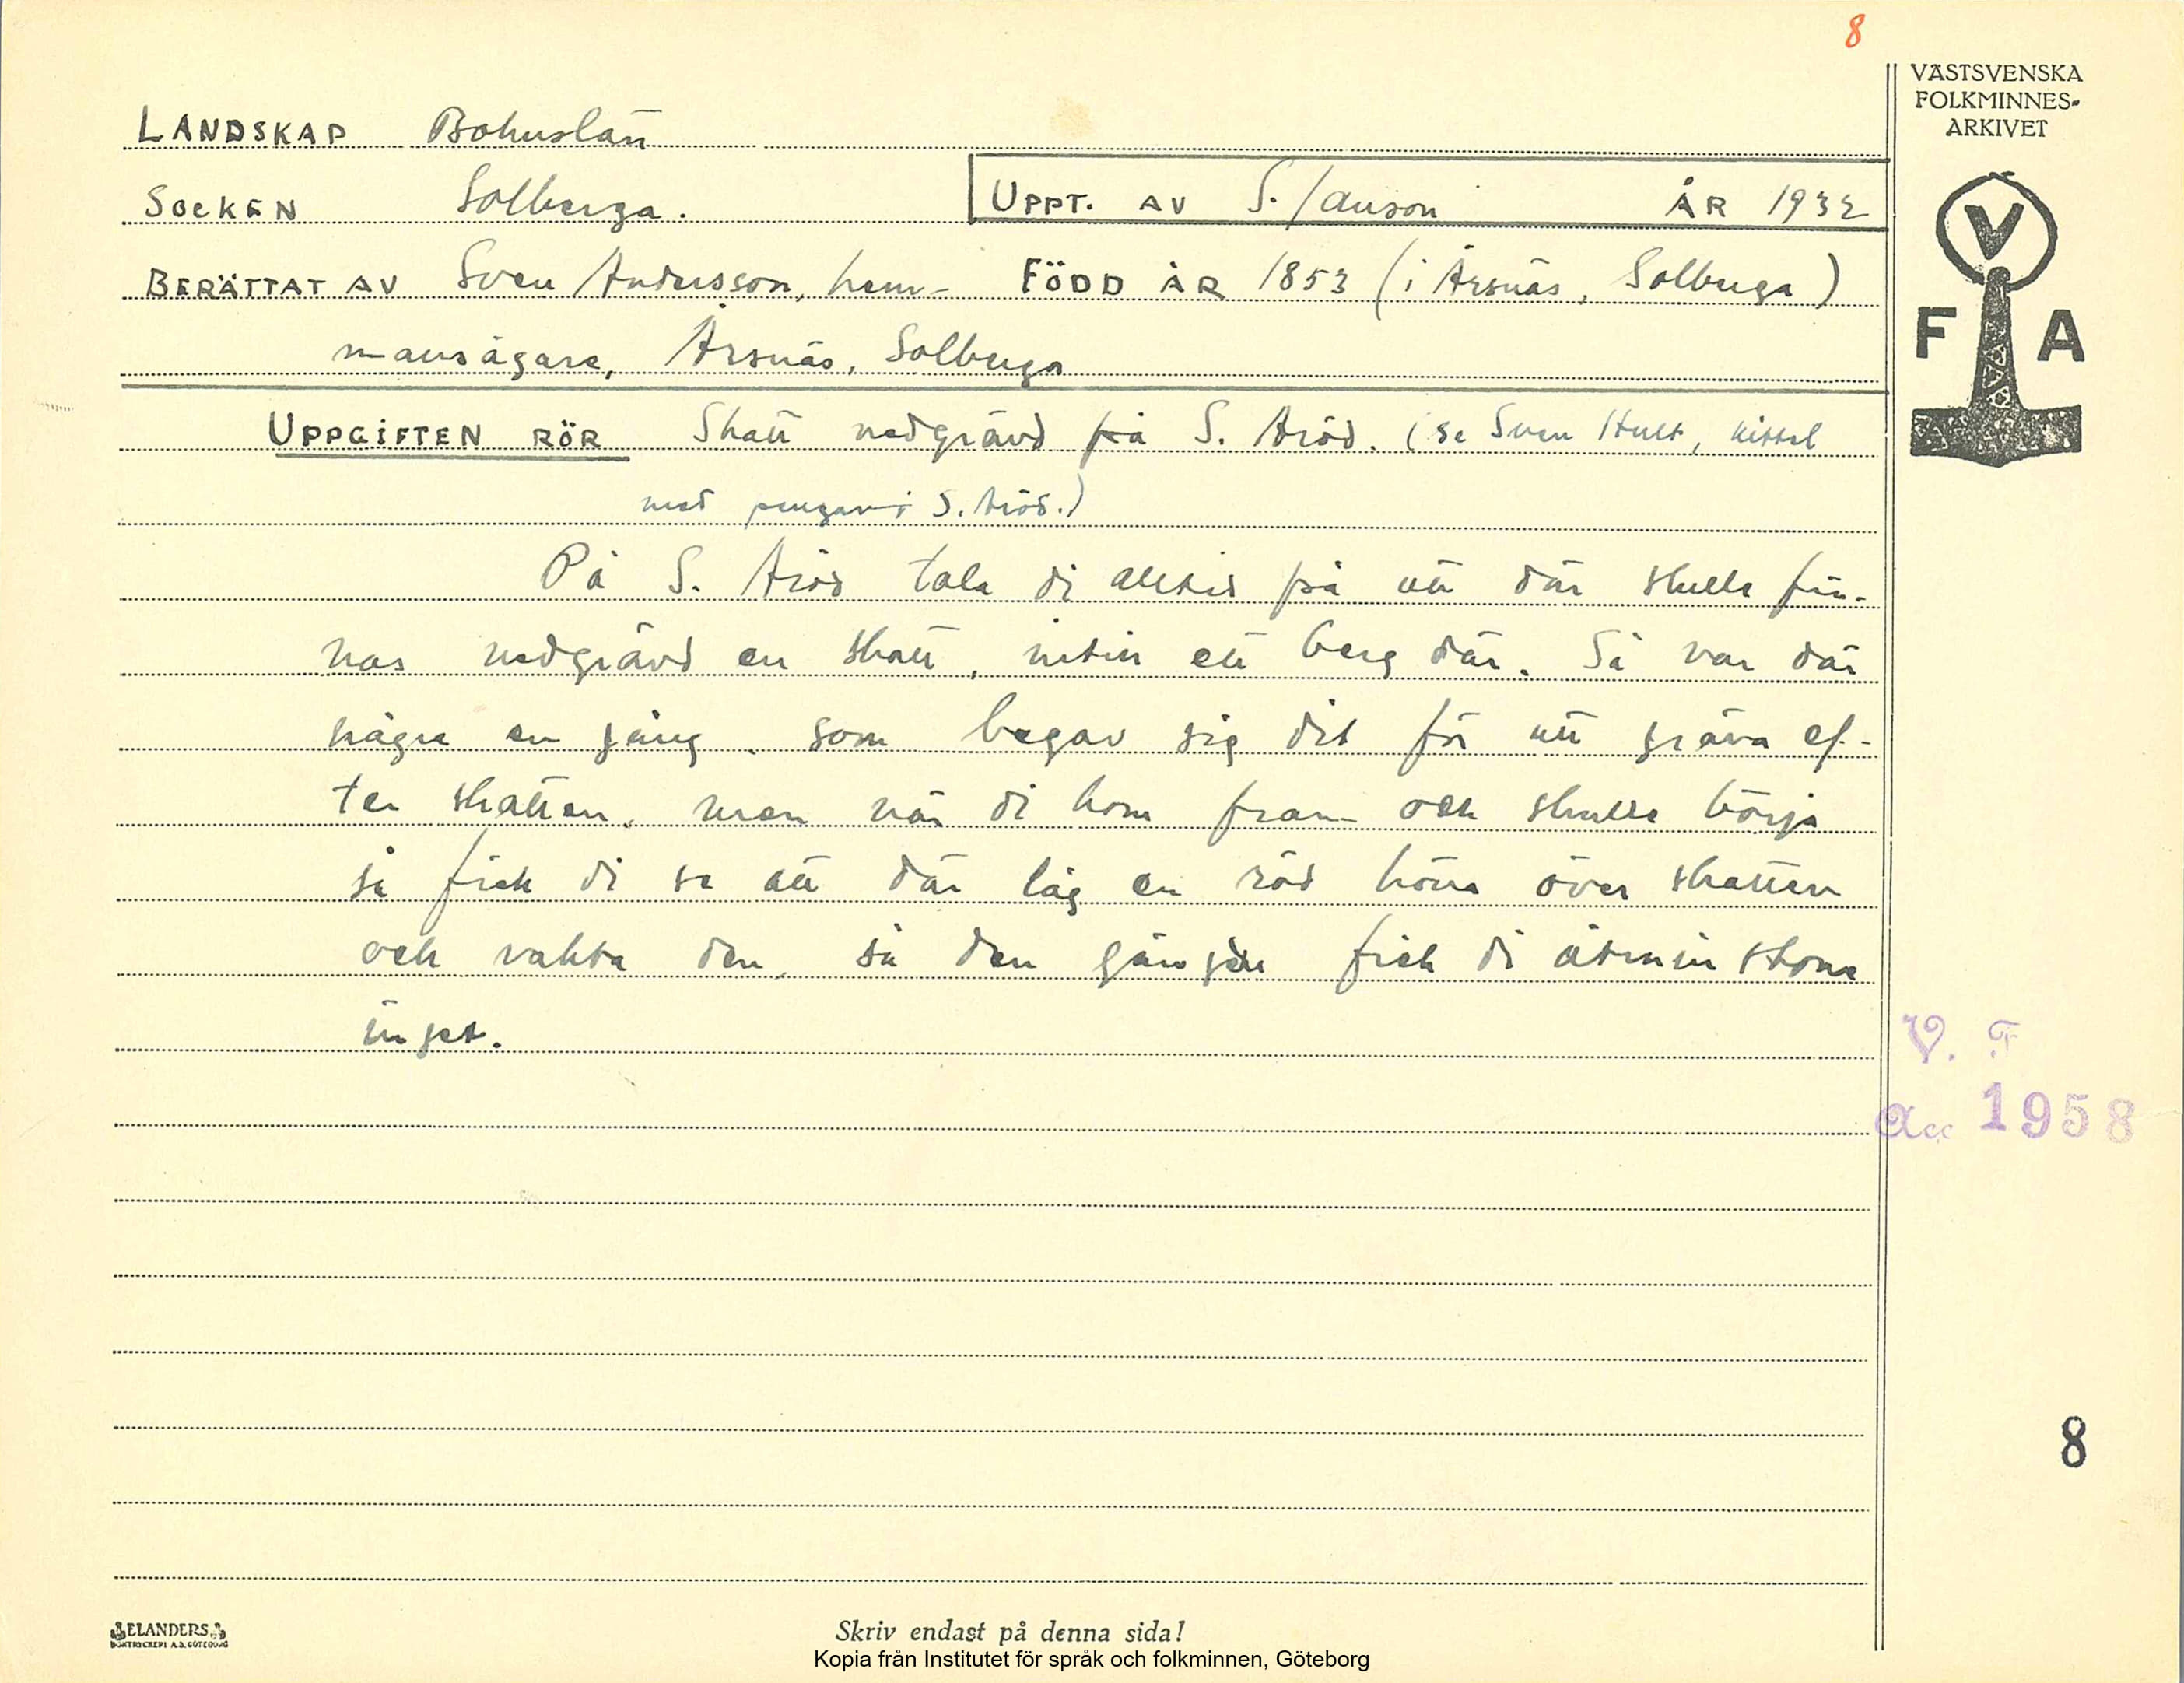 8
VÄSTSVENSKA
FOLKMINNES-
ARKIVET
V
F A
LANDSKAP Bohuslän
SOCKEN Solberga.
UPPT. AV S. Janson ÅR 1932
BERÄTTAT AV Sven Andersson, hem- FÖDD ÅR 1853 (i Årsnäs, Solberga)
mansägare, Årsnäs, Solberga
UPPGIFTEN RÖR Skatt nedgrävd på S. Aröd. (se Sven Hult, kittel
med pengar i S. Aröd.)
På S. Aröd tala di alltid på att där skulle fin-
nas nedgrävd en skatt, intin ett berg där. Så var där
några en gång, som begav sig dit för att gräva ef-
ter skatten, men när di kom fram och skulle börja
så fick di se att där låg en röd höna över skatten
och vakta den, så den gången fick di åtminstone
inget.
V. F
Acc 1958
8
ELANDERS
BOKTRYCKERI A.B. GÖTEBORG
Skriv endast på denna sida!
Kopia från Institutet för språk och folkminnen, Göteborg